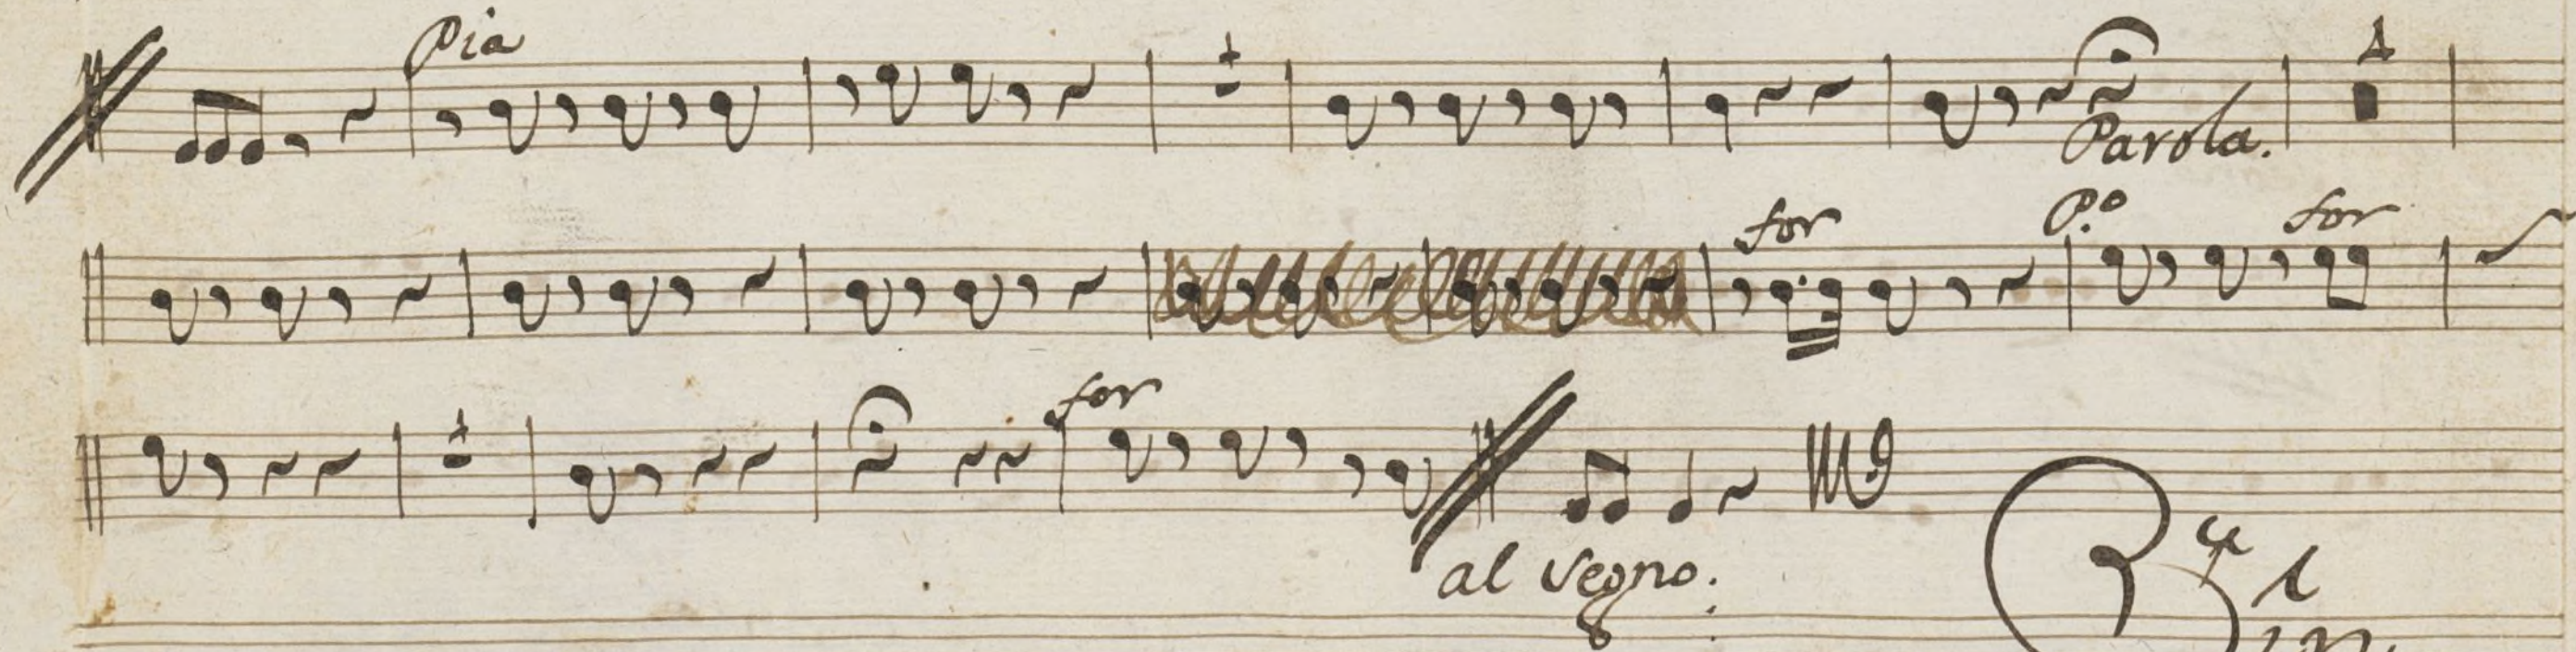 Pia
1
Parola.
for
P.o
for
for
al segno.